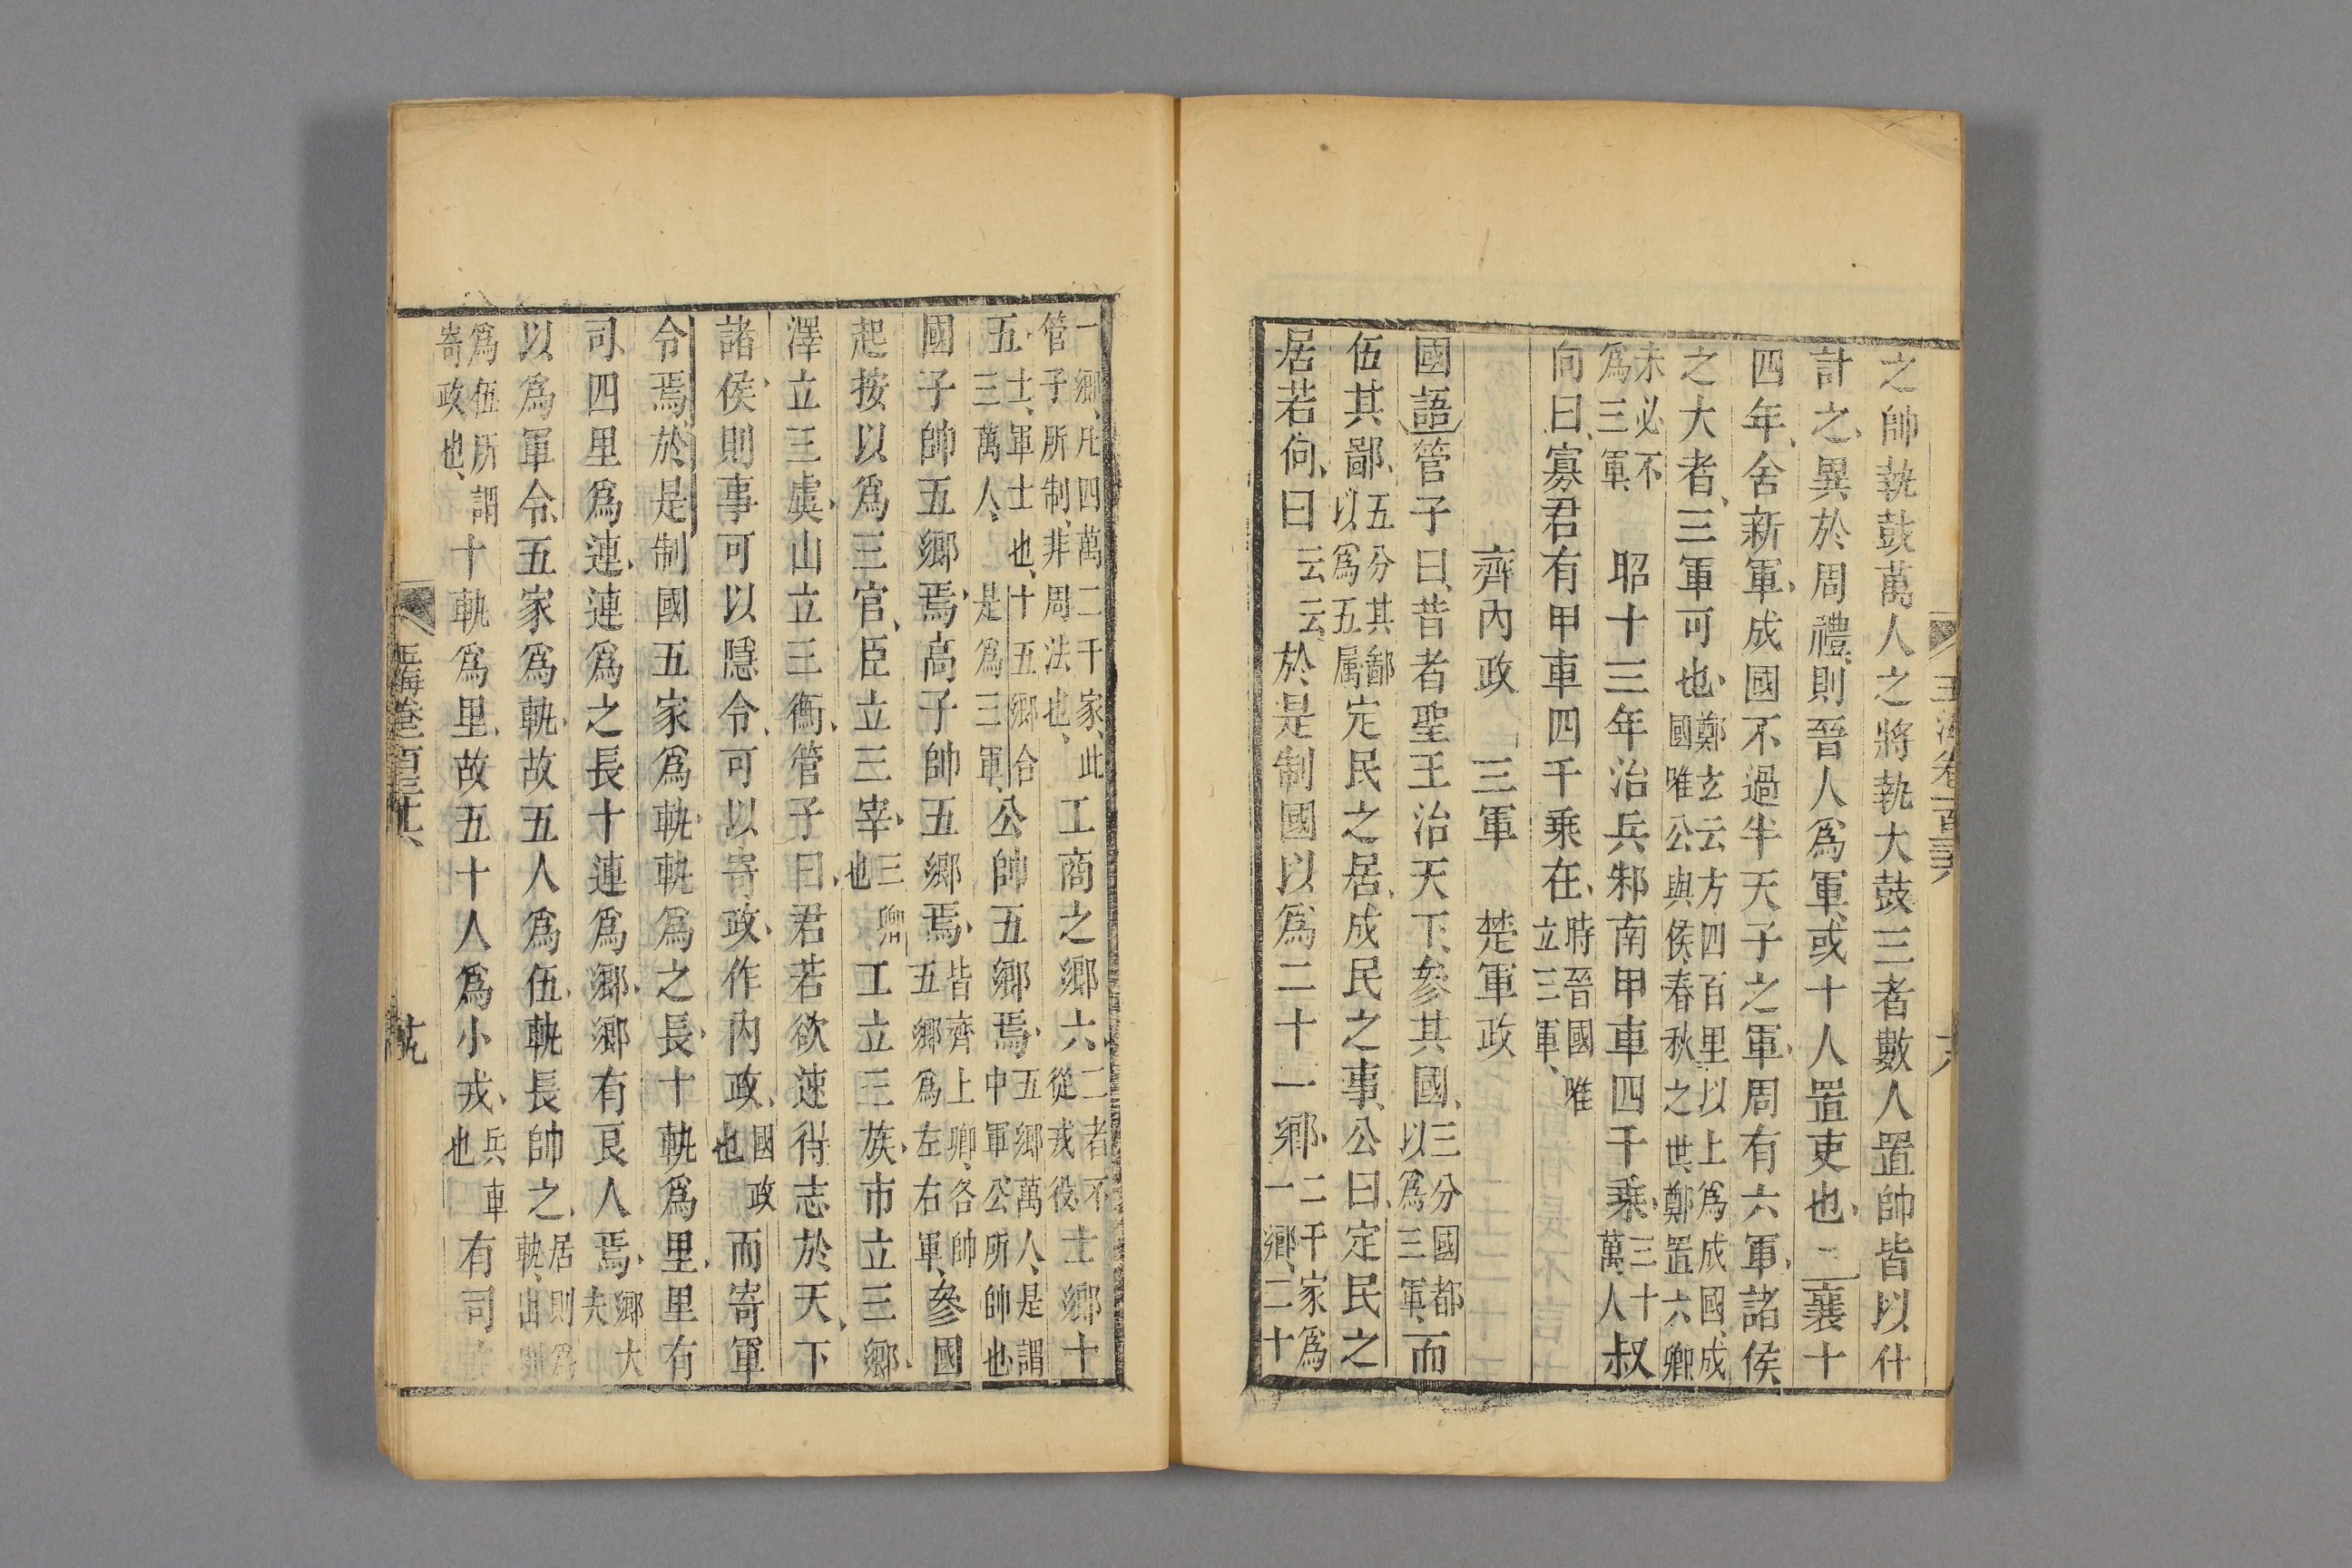 之帥執鼓萬人之將執大鼓三者數人置帥皆以什
計之異於周禮則晉人爲軍或十人置吏也 襄十
四年舍新軍成國不過半天子之軍周有六軍諸侯
之大者三軍可也鄭玄云方四百里以上爲成國成國唯公與侯春秋之世鄭置六卿
未必不爲三軍 昭十三年治兵邾南甲車四千乘三十萬人叔
向曰寡君有甲車四千乘在時晉國唯立三軍
齊內政 三軍 楚軍政
國語管子曰昔者聖王治天下參其國三分國都以爲三軍而
伍其鄙五分其鄙以爲五属定民之居成民之事公曰定民之
居若何曰云云於是制國以爲二十一鄉二千家爲一鄉二十
玉海卷
一鄉凡四萬二千家此管子所制非周法也工商之鄉六二者不從戎役士鄉十
五士軍士也十五鄉合三萬人是爲三軍公帥五鄉焉五鄉萬人是謂中軍公所帥也
國子帥五鄉焉高子帥五鄉焉皆齊上卿各帥五鄉爲左右軍參國
起按以爲三官臣立三宰三卿也工立三族市立三鄉
澤立三虞山立三衡管子曰君若欲速得志於天下
諸侯則事可以隱令可以寄政作內政國政也而寄軍
令焉於是制國五家爲軌軌爲之長十軌爲里里有
司四里爲連連爲之長十連爲鄉鄉有良人焉鄉大夫
以爲軍令五家爲軌故五人爲伍軌長帥之居則爲軌出則
爲伍所謂寄政也十軌爲里故五十人爲小戎兵車也有司
玉海卷